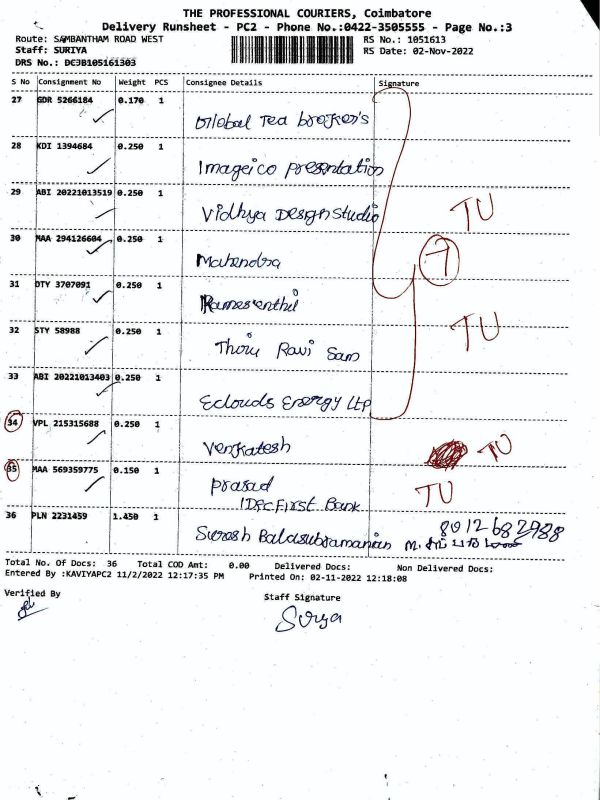 THE PROFESSIONAL COURIERS, Coimbatore
Delivery Runsheet - PC2 - Phone No.:0422-3505555 - Page No.:3
Route: SAMBANTHAM ROAD WEST RS No.: 1051613
Staff: SURIYA RS Date: 02-Nov-2022
DRS No.: DCJB105161303
S No Consignment No Weight PCS Consignee Details Signature
27 GDR 5266184 0.170 1
Global Tea broker's
28 KDI 1394684 0.250 1
Imageico presentation
29 ABI 20221013519 0.250 1
Vidhya Design Studio TU
30 MAA 294126604 0.250 1
Mahendra 7
31 DTY 3707091 0.250 1
Ramesenthil
32 STY 58988 0.250 1 TU
Thiru Ravi Sam
33 ABI 20221013403 0.250 1
Eclouds Energy LLP
34 VPL 215315688 0.250 1
Venkatesh TU
35 MAA 569359775 0.150 1
Prasad TU
IDFC First Bank
36 PLN 2231459 1.450 1
8012682988
Suresh Balasubramanian
Total No. Of Docs: 36 Total COD Amt: 0.00 Delivered Docs: Non Delivered Docs:
Entered By :KAVIYAPC2 11/2/2022 12:17:35 PM Printed On: 02-11-2022 12:18:08
Verified By Staff Signature
Surya